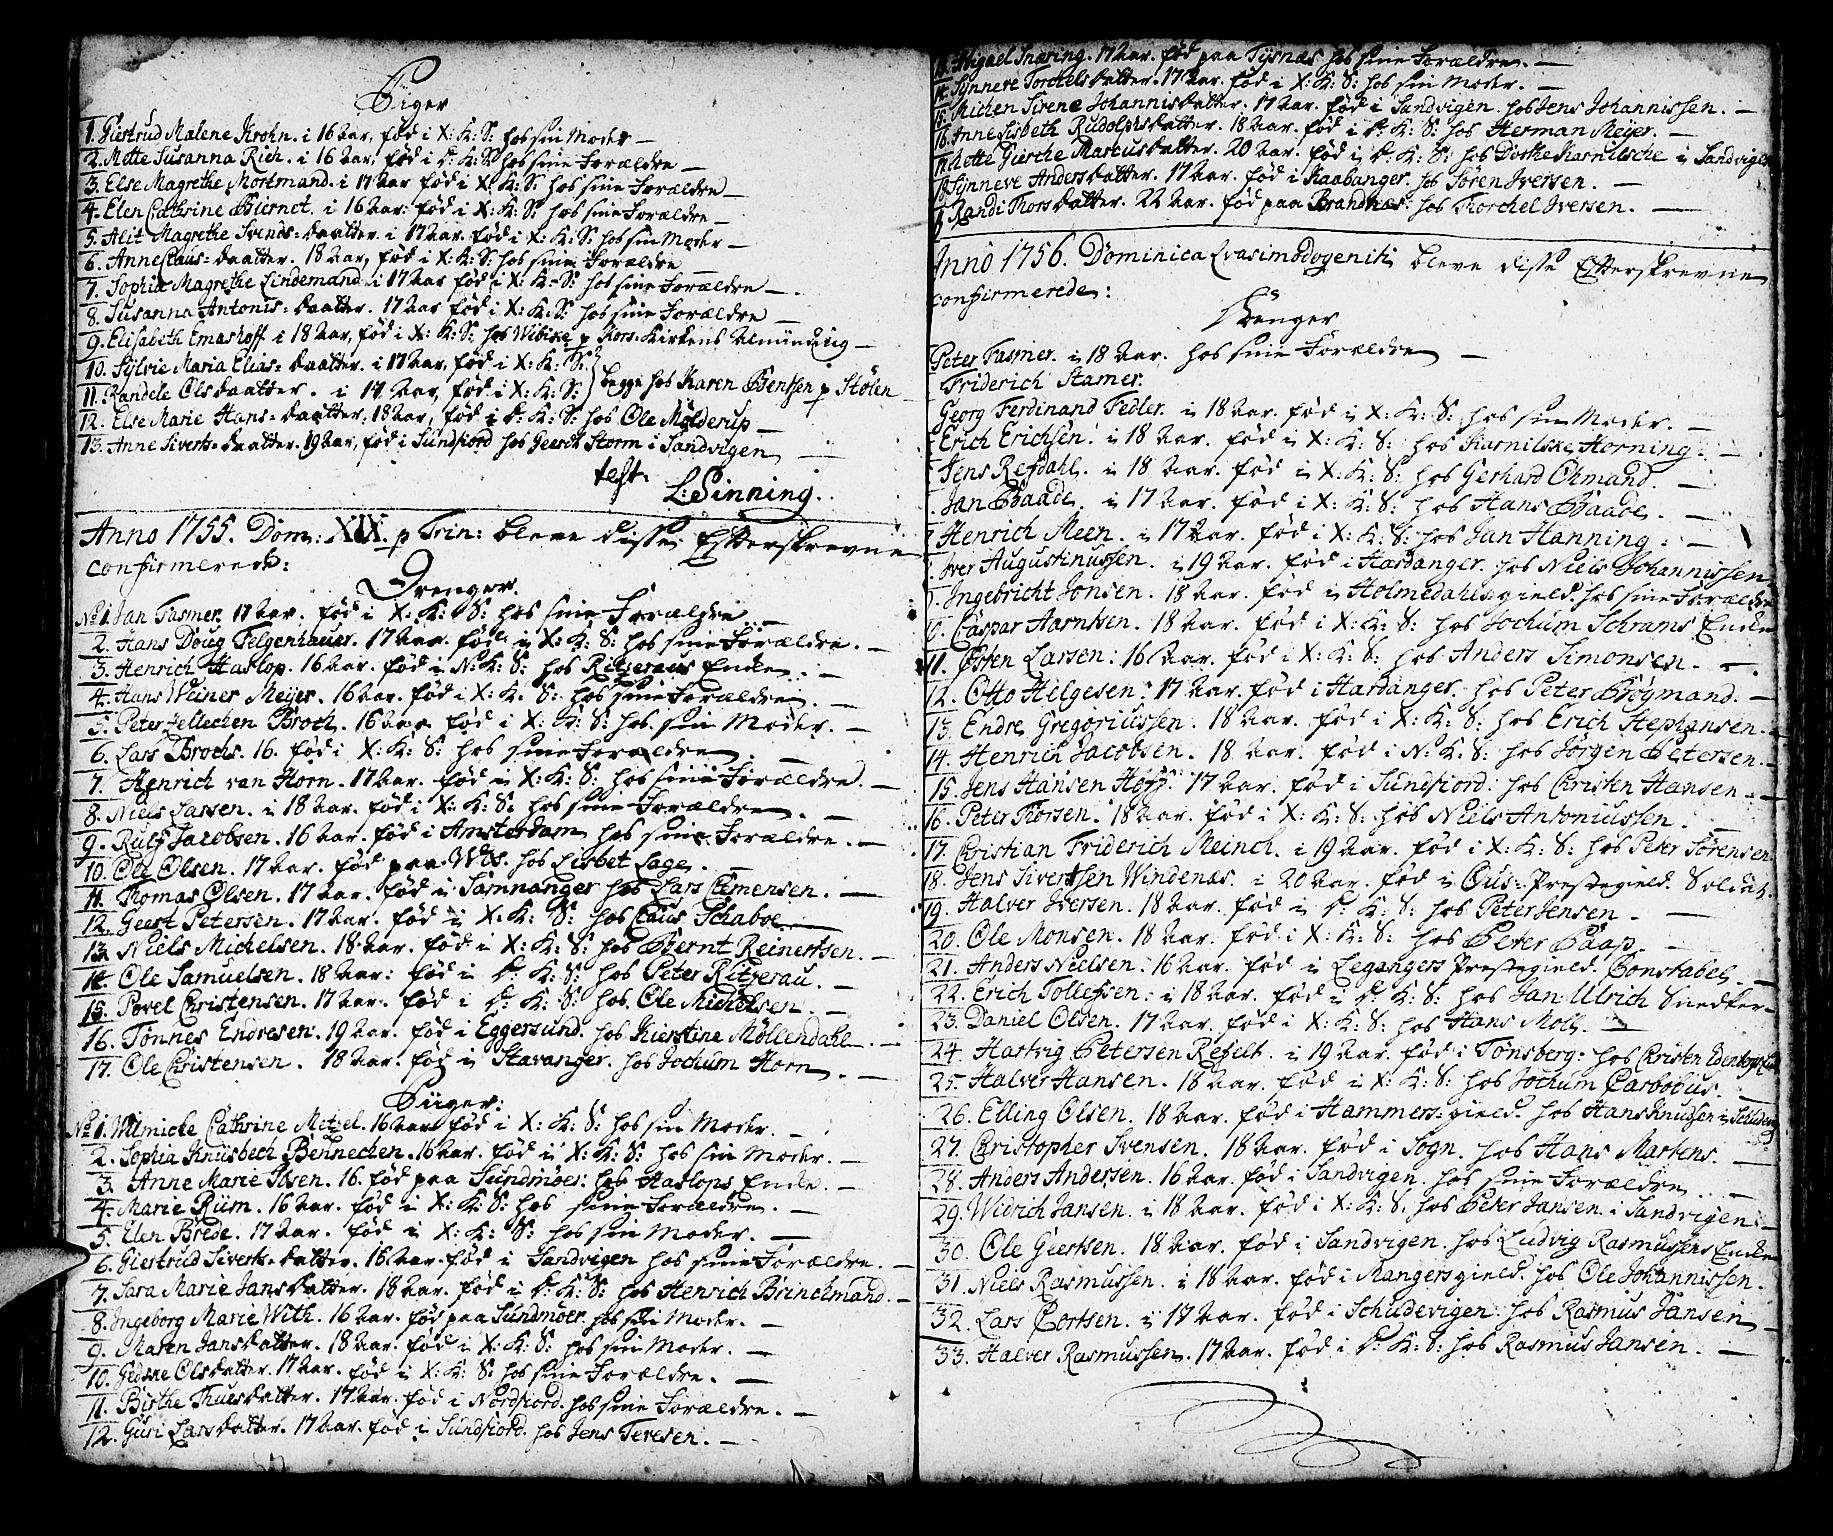 Piger
1. Giertrud Malene Krohn. i 16 aar, fød i X: K: S: hos sin Moder —
2. Mette Susanna Rich. i 16 aar, fød i D: K: S: hos sine Forældre —
3. Else Magrethe Mortmand. i 17 aar fød i X: K: S: hos sine Forældre —
4. Elen Cathrine Biernet. i 16 aar: fød i X: K: S: hos sine Forældre —
5. Alit Magrethe Svends=daatter. i 17 aar, fød i X: K: S: hos sin Moder —
6. Anne Claus=daatter. 18 aar, fød i X: K: S: hos sine Forældre
7. Sophia Magrethe Lindemand. i 17 aar fød i X: K: S: hos sine Forældre —
8. Susanna Antonis=daatter. 17 aar fød i X: K: S: hos sine Forældre —
9. Elisabeth Emashoff i 18 aar, fød i X: K: S: hos Wibike p Kors-Kirkens Almünding —
10. Sylvie Maria Elias=daatter. i 17 aar, fød i X: K: S:
11. Randele Olsdaatter. i 17 aar, fød i X: K: S: begge hos Karen Bentsen p Stølen
12. Else Marie Hans=daatter. 18 aar, fød i D: K: S: hos Ole Mølderup —
13. Anne Siverts=daatter. 19 aar, fød i Sundfiord hos Geerdt Storm i Sandvigen —
test:
L: Sinning.
Anno 1755. Dom: XIX. p Trin: bleve disse Efterskrevne
confirmerede:
Drenger.
No 1. Jan Fasmer. 17 aar. fød i X: K: S: hos sine Forældre —
2. Hans Doug Felgenhauer. 17 aar. fød i X: K: S: hos sine Forældre. —
3. Henrich Haslop. 16 aar. fød i N: K: S: hos Ritzeraus Enke. —
4. Hans Weiner Meyer. 16 aar. fød i X: K: S: hos sine Forældre. —
5. Peter Jellechen Broch. 16 aar fød i X: K: S: hos sin Moder. —
6. Lars Brochs. 16. fød i X: K: S: hos sine Forældre —
7. Henrich van Horn. 17 aar. fød i X: K: S: hos sine Forældre. —
8. Niels Lassen. i 18 aar. fød i X: K: S: hos sine Forældre. —
9. Rulf Jacobsen. 16 aar. fød i Amsterdam hos sine Forældre. —
10. Ole Olsen. 17 aar. fød paa Wos. hos Lisbet Sage. —
11. Thomas Olsen. 17 aar. fød i Samnanger hos Lars Clemensen. —
12. Geert Petersen. 17 aar. fød i X: K: S: hos Claus Schaboe —
13. Niels Michelsen. 18 aar. fød i X: K: S: hos Bernt Reinertsen. —
14. Ole Samuelsen. 18 aar: fød i D: K: S: hos Peter Ritzerau. —
15. Povel Christensen. 17 aar. fød i D: K: S: hos Ole Michelsen. —
16. Tønnes Endresen. 19 aar. fød i Eggersund. hos Kierstine Møllendahl. —
17. Ole Christensen. 18 aar. fød i Stavanger. hos Jochum Horn. —
Piiger:
No 1. Wilmicke Cathrine Metzel. 16 aar fød i X: K: S: hos sin Moder. —
2. Sophia Knüsbech Bennechen. 16 aar. fød i X: K: S: hos sin Moder. —
3. Anne Marie Ilsen. 16. fød paa Sundmøer: hos Haslops Enke. —
4. Marie Rüm. 16 aar. fød i X: K: S: hos sine Forældre. —
5. Elen Brede. 17 aar. fød i X: K: S: hos sin Moder. —
6. Giertrud Siverts-datter. 16 aar. fød i Sandvigen hos sine Forældre. —
7. Sara Marie Jansdatter. 18 aar. fød i D: K: S: hos Henrich Brinchmand. —
8. Ingeborg Marie With. 16 aar. fød paa Sundmøer. hos sin Moder. —
9. Maren Jansdatter. 18 aar. fød i X: K: S: hos sin Moder. —
10. Gedske Olsdatter. 17 aar. fød i X: K: S: hos sine Forældre. —
11. Birthe Thuesdatter. 17 aar. fød i Nordfiord. hos sine Forældre. —
12. Guri Larsdatter. 17 aar. fød i Sundfiord. hos Jens Teresen. —
13. Abigael Snaring. 17 aar. fød paa Tysnæs hos sine Forældre. —
14. Synneve Torchelsdatter. 17 aar. fød i X: K: S: hos sin Moder. —
15. Michen Sirene Johannisdatter. 17 aar. fød i Sandvigen. hos Jens Johannissen. —
16. Anne Lisbeth Rudolphsdatter. 18 aar. fød i D: K: S: hos Herman Meyer. —
17. Lotte Gierthe Marcusdatter. 20 aar. fød i D: K: S: hos Dorthe Karnilsche i Sandvigen
18. Synneve Andersdatter. 17 aar. fød i Kaabanger. hos Søren Iversen. —
Randi Thorsdatter. 22 aar. fød paa Brandnæs. hos Thorchel Iversen. —
Anno 1756. Dominica Qvasimodogeniti bleve disse Efterskrevne
confirmerede:
Drenger
Peter Fasmer. i 18 aar. hos sine Forældre —
Friderich Stamer.
Georg Ferdinand Fedler. i 18 aar. fød i X: K: S: hos sin Moder. —
Erich Erichsen. i 18 aar. fød i X: K: S: hos Karnilske Horning. —
Jens Refdahl. i 18 aar. fød i X: K: S: hos Gerhard Ohmand. —
Jan Baade. i 17 aar. fød i X: K: S: hos Hans Baade. —
Henrich Meen. i 17 aar. fød i X: K: S: hos Jan Hanning. —
Iver Augustinussen. i 19 aar. fød i Hardanger. hos Niels Johannissen
Ingebricht Jonsen. 18 aar. fød i Holmedahls gield. hos sine Forældre
10. Caspar Harntsen. 18 aar. fød i X: K: S: hos Jochum Schrams Enke
11. Østen Larsen: 16 aar. fød i X: K: S: hos Anders Simonsen. —
12. Otto Helgesen. 17 aar. fød i Hardanger. hos Peter Brøgmand. —
13. Endre Gregoriussen. 18 aar. fød i X: K: S: hos Erich Stephansen. —
14. Henrich Jacobsen. 18 aar. fød i N: K: S: hos Jørgen Petersen. —
15. Jens Hansen Høyy. 17 aar. fød i Sundfiord. hos Christen Hansen. —
16. Peter Thorsen. 18 aar. fød i X: K: S: hos Niels Antoniussen. —
17. Christian Friderich Meinch. i 19 aar. fød i X: K: S: hos Peter Sørensen.
18. Jens Sivertsen Windenæs. i 20 aar. fød i Ous=Prestegield. Soldat.
19. Halver Iversen. 18 aar. fød i D: K: S: hos Peter Jensen. —
20. Ole Monsen. 18 aar. fød i X: K: S: hos Peter Paap. —
21. Anders Nielsen. 16 aar. fød i Legangers Prestegield. Constabel. —
22. Erich Tollefsen: i 18 aar. fød i D: K: S: hos Jan Ulrich Snedker —
23. Daniel Olsen. 17 aar. fød i X: K: S: hos Hans Moll. —
24. Hartvig Petersen Refelt. i 19 aar. fød i Tønsberg: hos Christen
25. Halver Hansen. 18 aar. fød i X: K: S: hos Jochum Carbobus. —
26. Elling Olsen. 18 aar. fød i Hammers=gield. hos Hans Knudsen i
27. Christopher Svensen. 18 aar. fød i Sogn. hos Hans Martens. —
28. Anders Andersen. 16 aar. fød i Sandvigen. hos sine Forældre. —
29. Widrich Jansen. i 18 aar. fød i X: K: S: hos Peter Jansen. i Sandvigen —
30. Ole Geertsen. 18 aar. fød i Sandvigen. hos Ludvig Rasmussens Enke
31. Niels Rasmussen. i 18 aar. fød i Mangers gield. hos Ole Johannissen.
32. Lars Cortsen. i 17 aar. fød i Schudevigen: hos Rasmus Jansen —
33. Halver Rasmussen. 17 aar. fød i D: K: S: hos Rasmus Jansen. —